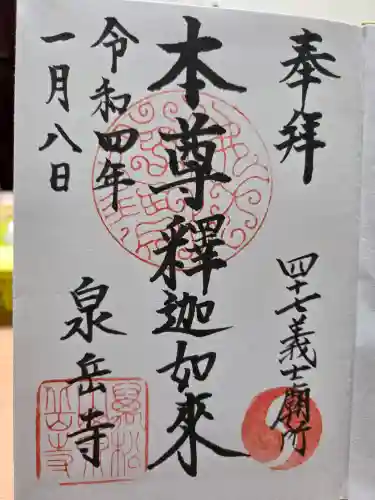 奉拝
四十七義士廟所
本尊釋迦如來
令和四年
一月八日
泉岳寺